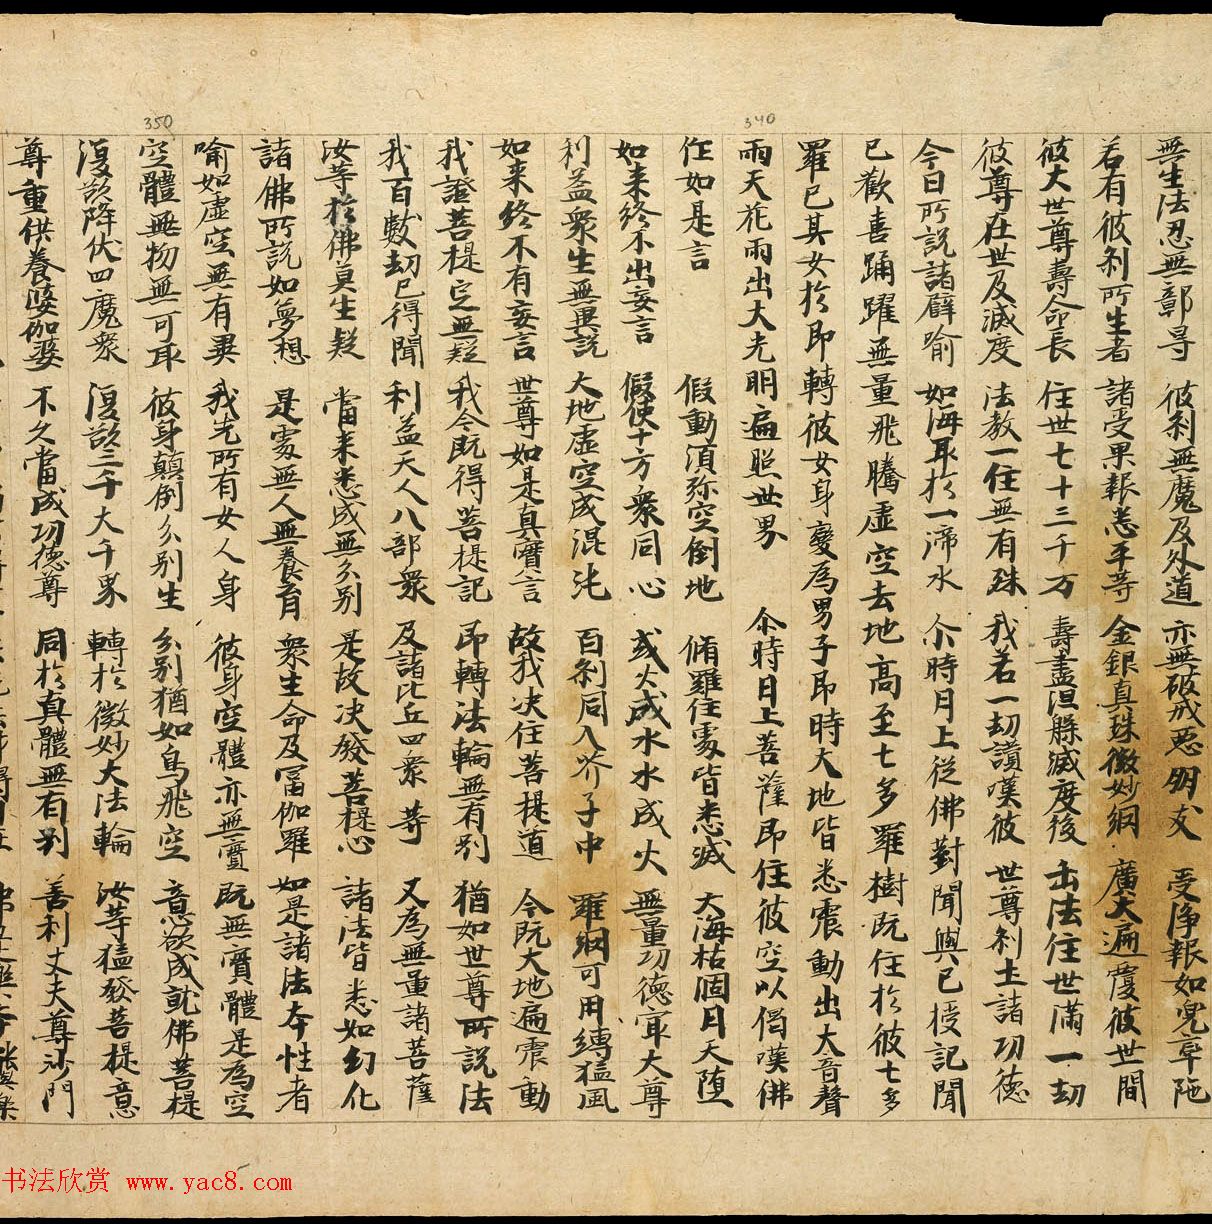 無生法忍無鄣㝵　彼剎無魔及外道　亦無破戒惡朋友　受淨報如兜率陁
若有彼剎所生者　諸受果報悉平等　金銀真珠微妙網　廣大遍覆彼世間
彼大世尊壽命長　住世七十三千万　壽盡涅槃滅度後　出法住世滿一劫
彼尊在世及滅度　法教一住無有殊　我若一劫讚嘆彼　世尊剎土諸功德
今日所說諸譬喻　如海取於一渧水　尒時月上從佛對聞與已授記聞
已歡喜踊躍無量飛騰虛空去地高至七多羅樹既住於彼七多
羅已其女於即轉彼女身變為男子即時大地皆悉震動出大音聲
雨天花雨出大光明遍照世界　尒時日上菩薩即住彼空以偈嘆佛
作如是言　假動須弥空倒地　脩羅住處皆悉滅　大海枯涸月天墮
如来終不出妄言　假使十方衆同心　或火成水水成火　無量功德寂大尊
利益衆生無異說　大地虛空成混沌　百剎同入芥子中　羅網可用縛猛風
如来終不有妄言　世尊如是真實言　故我决住菩提道　今既大地遍震動
我證菩提定無疑　我今既得菩提記　即轉法輪無有别　猶如世尊所說法
我百數劫已得聞　利益天人八部衆　及諸比丘四衆等　又為無量諸菩薩
汝等於佛莫生疑　當来悉成無分别　是故决發菩提心　諸法皆悉如幻化
諸佛所說如夢想　是處無人無養育　衆生命及富伽羅　如是諸法本性者
喻如虛空無有異　我先所有女人身　彼身空體亦無實　既無實體是為空
空體無物無可取　彼身顛倒分别生　分别猶如鳥飛空　意欲成就佛菩提
復欲降伏四魔衆　復欲三千大千界　轉於微妙大法輪　汝等猛發菩提意
尊重供養婆伽婆　不久當成功德尊　同於真體無有别　善利丈夫尊沙門
350
340
书法欣赏 www.yac8.com